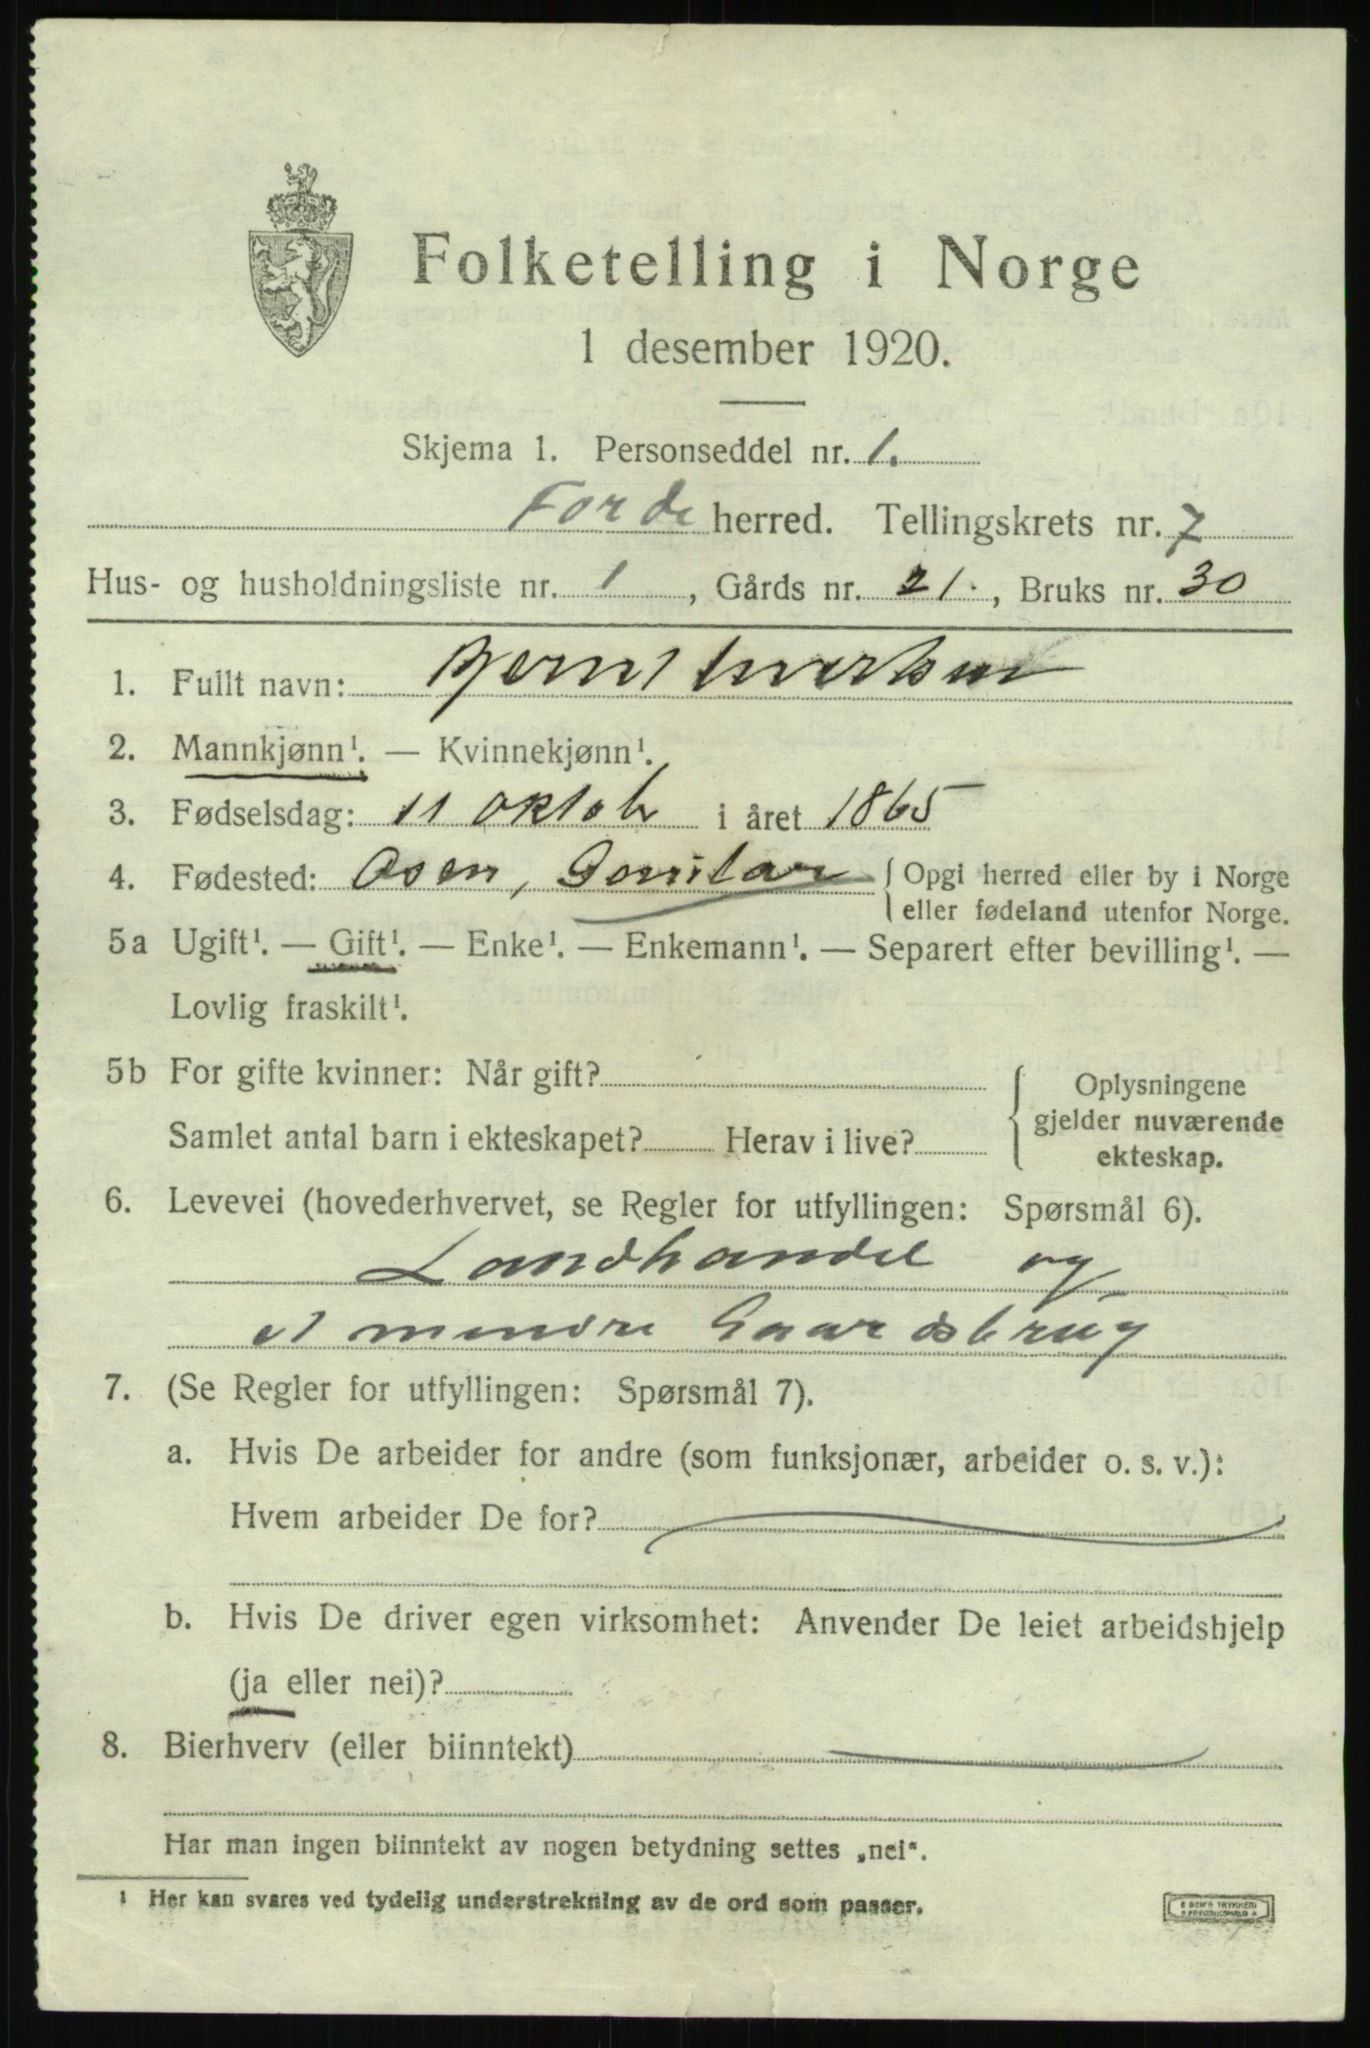 Folketelling i Norge
1 desember 1920.
Skjema 1. Personseddel nr. 1.
Forde herred. Tellingskrets nr. 7
Hus- og husholdningsliste nr. 1, Gårds nr. 21., Bruks nr. 30
1. Fullt navn:
2. Mannkjønn¹. — Kvinnekjønn¹.
3. Fødselsdag: 11 oktob i året 1865
4. Fødested: Osen, { Opgi herred eller by i Norge
eller fødeland utenfor Norge.
5a Ugift¹. — Gift¹. — Enke¹. — Enkemann¹. — Separert efter bevilling¹. —
Lovlig fraskilt¹.
5b For gifte kvinner: Når gift?
Samlet antal barn i ekteskapet? Herav i live?
{ Oplysningene
gjelder nuværende
ekteskap.
6. Levevei (hovederhvervet, se Regler for utfyllingen: Spørsmål 6).
Landhandel og
et mindre Gaardsbrug
7. (Se Regler for utfyllingen: Spørsmål 7).
a. Hvis De arbeider for andre (som funksjonær, arbeider o. s. v.):
Hvem arbeider De for?
b. Hvis De driver egen virksomhet: Anvender De leiet arbeidshjelp
(ja eller nei)?
8. Bierhverv (eller biinntekt)
Har man ingen biinntekt av nogen betydning settes „nei“.
¹ Her kan svares ved tydelig understrekning av de ord som passer.